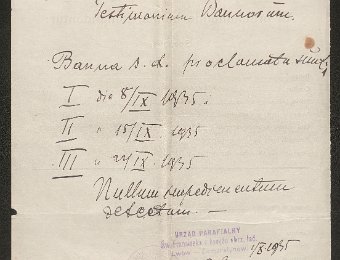 Testimonium Bannorum.
Banna s. d. proclamata sunt
I die 8/IX 1935.
II " 15/IX 1935
III " 22/IX 1935
Nullum impedimentum
detectum. —
URZĄD PARAFIALNY
1935